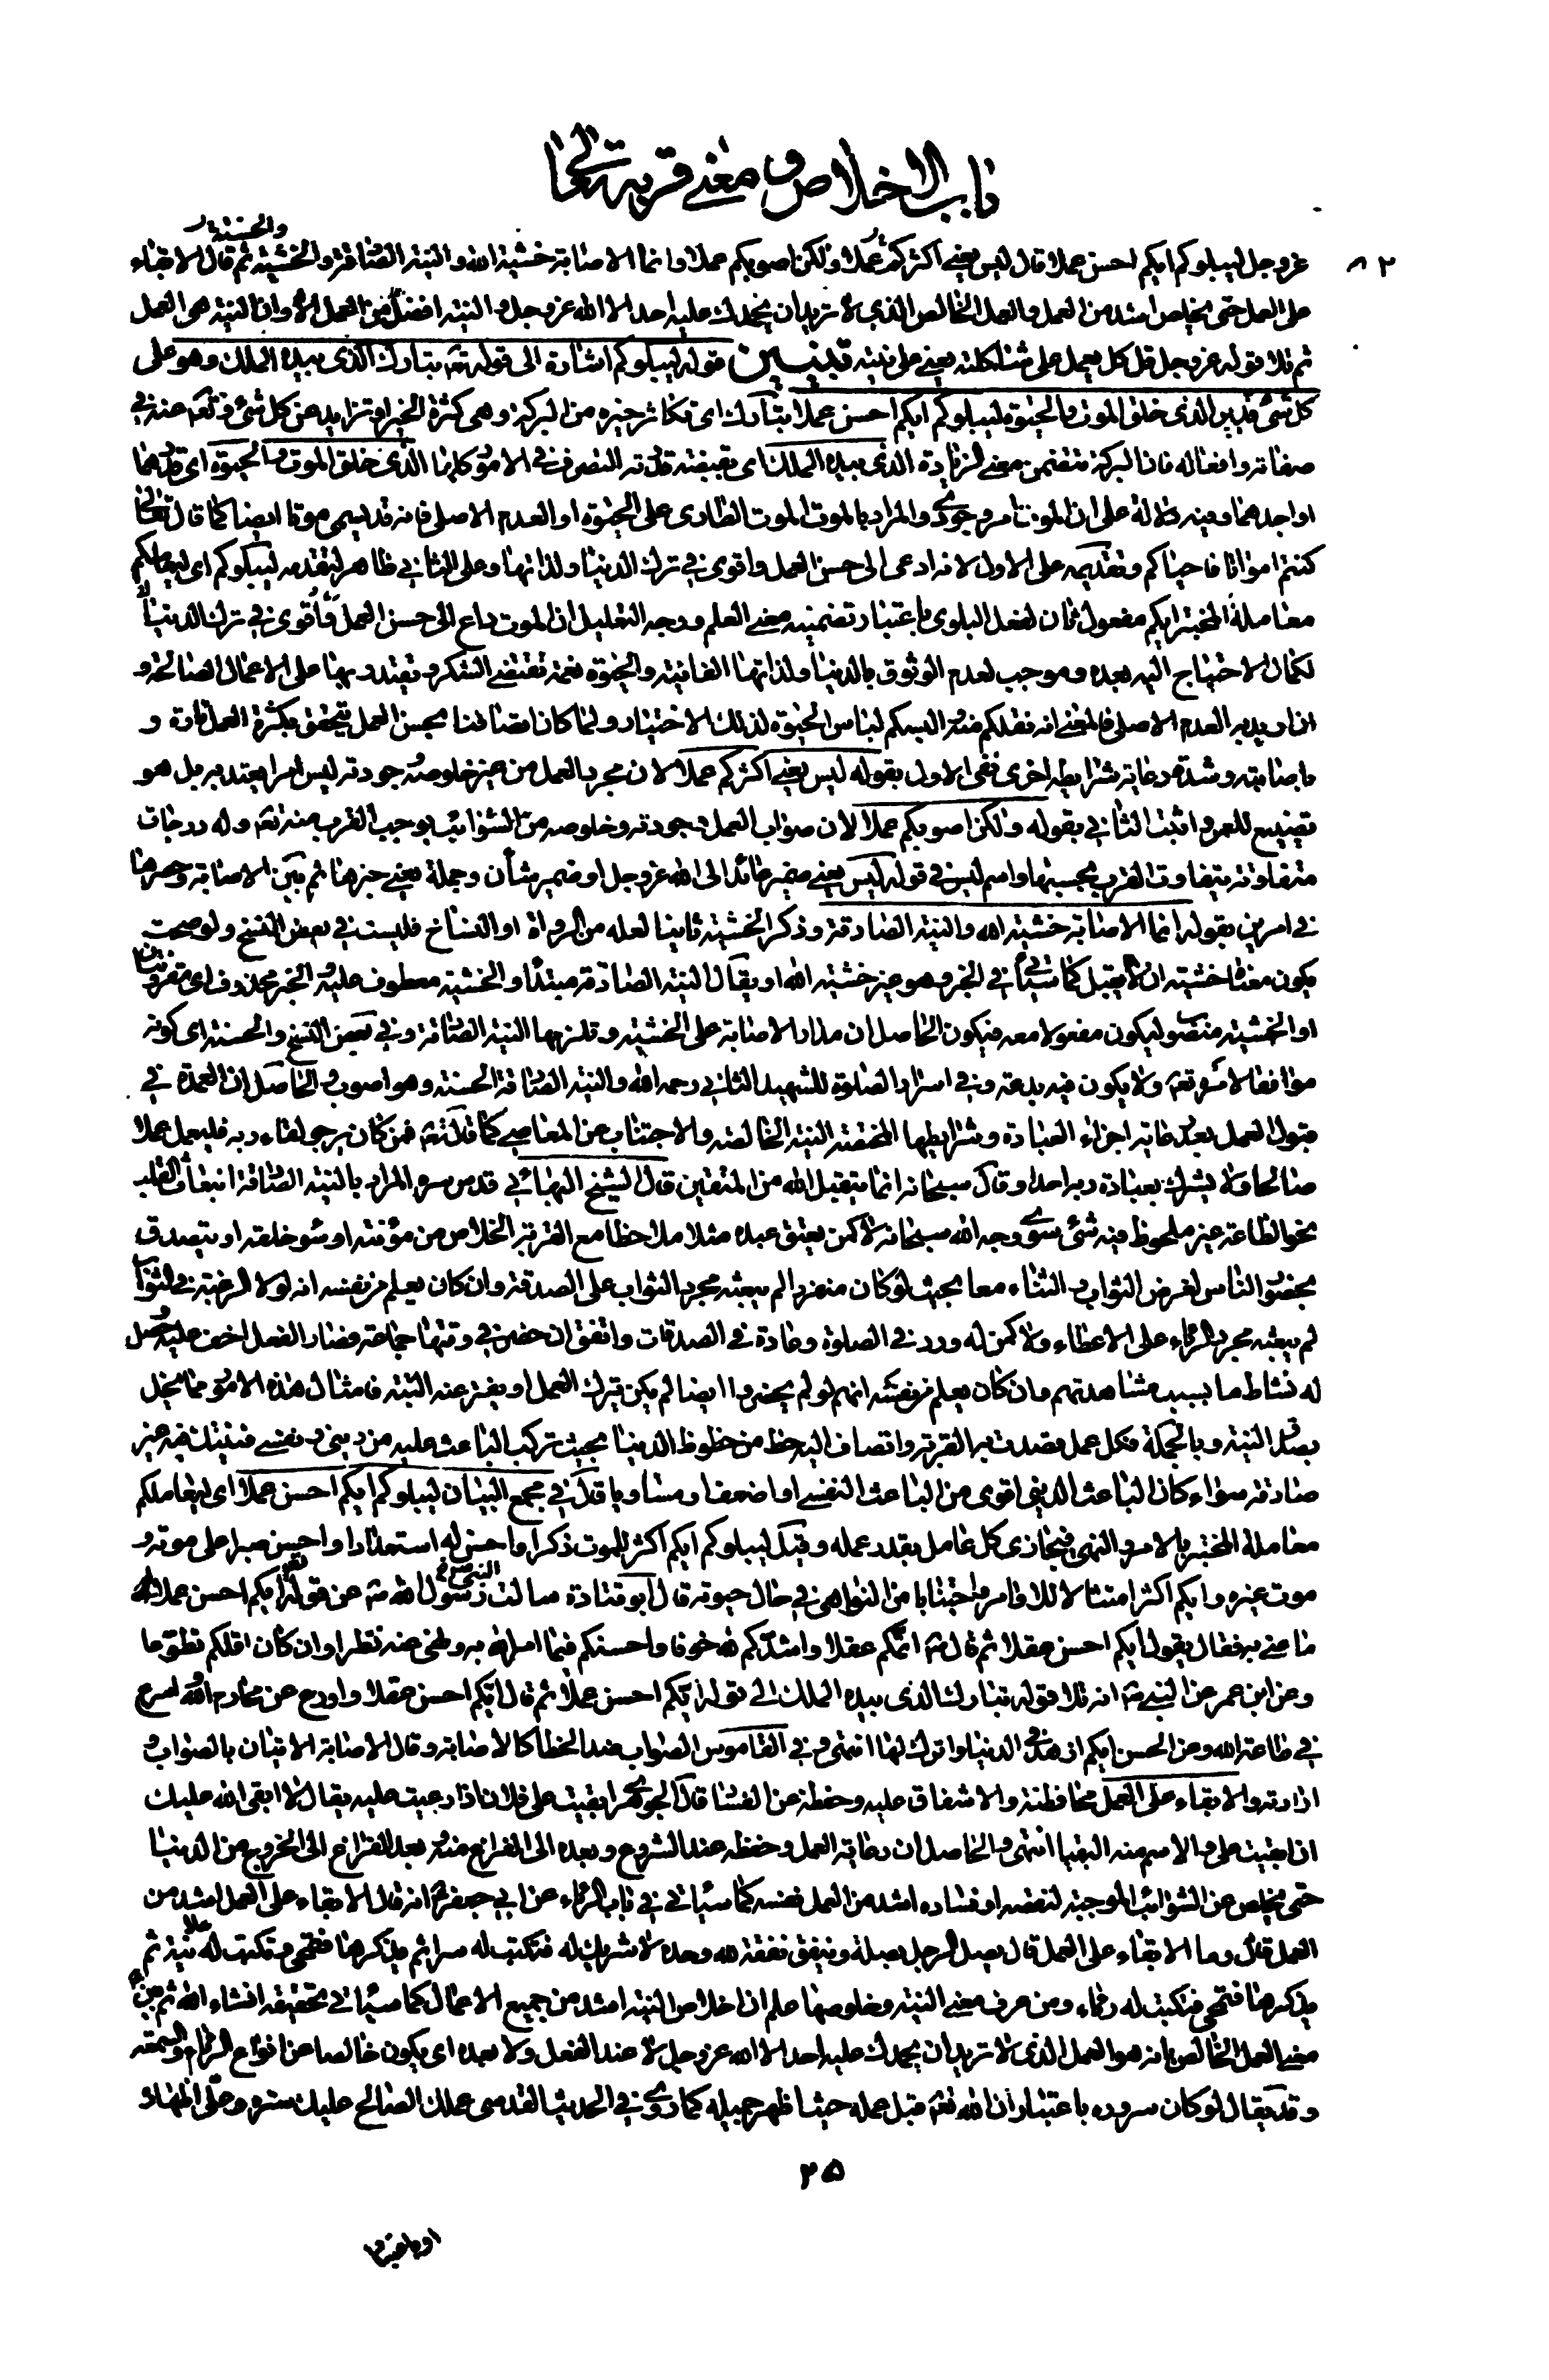 باب الاخلاص و معنى قربته تعالى
والحسنة
٨٢
عز وجل ليبلوكم ايكم احسن عملا قال ليس يعنى اكثركم عملا ولكن اصوبكم عملا وانما الاصابة خشية الله والنية الصادقة والخشية ثم قال الابقاء
على العمل حتى يخلص اشد من العمل والعمل الخالص الذى لا تريد ان يحمدك عليه احد الا الله عز وجل والنية افضل من العمل الا وان النية هى العمل
ثم تلا قوله عز وجل قل كل يعمل على شاكلته يعنى على نيته تبيين قوله ليبلوكم اشارة الى قوله تعه تبارك الذى بيده الملك وهو على
كل شئ قدير الذى خلق الموت والحيوة ليبلوكم ايكم احسن عملا تبارك اى تكاثر خيره من البركة وهى كثرة الخير او تزايد عن كل شئ وتعه عنه فى
صفاته وافعاله فان البركة تتضمن معنى الزيادة الذى بيده الملك اى بقبضة قدرته التصرف فى الامور كلها الذى خلق الموت والحيوة اى قدرهما
او اوجدهما وفيه دلالة على ان الموت امر وجودى والمراد بالموت الموت الطارى على الحيوة او العدم الاصلى فانه قد يسمى موتا ايضا كما قال تعالى
كنتم امواتا فاحياكم وتقديمه على الاول لانه ادعى الى حسن العمل واقوى فى ترك الدنيا ولذاتها وعلى الثانى ظاهر لتقدمه ليبلوكم اى ليعاملكم
معاملة المختبر ايكم مفعول ثان لفعل البلوى باعتبار تضمينه معنى العلم ووجه التعليل ان الموت داع الى حسن العمل واقوى فى ترك الدنيا
لكمال الاحتياج اليه بعده وموجب لعدم الوثوق بالدنيا ولذاتها الفانية والحيوة نعمة تقتضى الشكر ويقتدر بها على الاعمال الصالحة و
ان اريد به العدم الاصلى فالمعنى انه نقلكم منه والبسكم لباس الحيوة لذلك الاختبار ولما كان اتصافنا بحسن العمل يتحقق بكثرة العمل تارة و
باصابته وشدة رعاية شرايطه اخرى نفى الاول بقوله ليس يعنى اكثركم عملا لان مجرد العمل من غير خلوصه وجودته ليس امرا يعتد به بل هو
تضييع للعمر واثبت الثانى بقوله ولكن اصوبكم عملا لان صواب العمل وجودته وخلوصه من الشوائب يوجب القرب منه تعه وله درجات
متفاوتة يتفاوت القرب بحسبها واسم ليس فى قوله ليس يعنى ضمير عائد الى الله عز وجل او ضمير شأن وجملة يعنى خبرها ثم بين الاصابة وحصرها
فى امرين بقوله انما الاصابة خشية الله والنية الصادقة وذكر الخشية ثانيا لعله من الرواة او النساخ فليست فى بعض النسخ ولو صحت
يكون معناه خشية ان لا يقبل كما سيأتى فى الخبر وهو غير خشية الله او يقال النية الصادقة مبتدأ والخشية معطوف عليه والخبر محذوف اى مقرونتان
او الخشية منصوب ليكون مفعولا معه فيكون الحاصل ان مدار الاصابة على الخشية وتلزمها النية الصادقة وفى بعض النسخ والحسنة اى كونه
موافقا لامره تعه ولا يكون فيه بدعة وفى اسرار الصلوة للشهيد الثانى رحمه الله والنية الصادقة الحسنة وهو اصوب والحاصل ان العمدة فى
قبول العمل بعد رعاية اجزاء العبادة وشرايطها المختصة النية الخالصة والاجتناب عن المعاصى كما قال تعه فمن كان يرجو لقاء ربه فليعمل عملا
صالحا ولا يشرك بعبادة ربه احدا وقال سبحانه انما يتقبل الله من المتقين قال الشيخ البهائى قدس سره المراد بالنية الصادقة انبعاث القلب
نحو الطاعة غير ملحوظ فيه شئ سوى وجه الله سبحانه لا كمن يعتق عبده مثلا ملاحظا مع القربة الخلاص من مؤنته او سوء خلقه او يتصدق
بحضور الناس لغرض الثواب والثناء معا بحيث لو كان منفردا لم يبعثه مجرد الثواب على الصدقة وان كان يعلم من نفسه انه لولا الرغبة فى الثواب
لم يبعثه مجرد الرياء على الاعطاء ولا كمن له ورد فى الصلوة وعادة فى الصدقات واتفق ان حضر فى وقتها جماعة فصار الفعل اخف عليه وحصل
له نشاط ما بسبب مشاهدتهم وان كان يعلم من نفسه انهم لو لم يحضروا ايضا لم يكن يترك العمل او يفتر عنه البتة فامثال هذه الامور مما يخل
بصدق النية وبالجملة فكل عمل قصدت به القربة وانضاف اليه حظ من حظوظ الدنيا بحيث تركب الباعث عليه من دينى ونفسى فنيتك فيه غير
صادقة سواء كان الباعث الدينى اقوى من الباعث النفسى او اضعف او مساويا قال فى مجمع البيان ليبلوكم ايكم احسن عملا اى ليعاملكم
معاملة المختبر بالامر والنهى فيجازى كل عامل بقدر عمله وقيل ليبلوكم ايكم اكثر للموت ذكرا واحسن له استعدادا واحسن صبرا على موته و
موت غيره وايكم اكثر امتثالا للاوامر واجتنابا من النواهى فى حال حيوته قال ابو قتادة سالت رسول الله ص عن قوله ايكم احسن عملا
ما عنى به فقال يقول ايكم احسن عقلا ثم قال ص اتمكم عقلا واشدكم لله خوفا واحسنكم فيما امر الله به ونهى عنه نظرا وان كان اقلكم تطوعا
وعن ابن عمر عن النبى ص انه تلا قوله تبارك الذى بيده الملك الى قوله ايكم احسن عملا ثم قال ايكم احسن عقلا واورع عن محارم الله واسرع
فى طاعة الله وعن الحسن ايكم ازهد فى الدنيا واترك لها انتهى وفى القاموس الصواب ضد الخطا كالاصابة وقال الاصابة الاتيان بالصواب و
ارادته والابقاء على العمل محافظته والاشفاق عليه وحفظه عن الفساد قال الجوهرى ابقيت على فلان اذا رعيت عليه يقال لا ابقى الله عليك
ان ابقيت على والاسم منه البقيا انتهى والحاصل ان رعاية العمل وحفظه عند الشروع وبعده الى الفراغ منه وبعد الفراغ الى الخروج من الدنيا
حتى يخلص عن الشوائب الموجبة لنقصه او فساده اشد من العمل نفسه كما سيأتى فى باب الرياء عن ابى جعفر ع انه قال الابقاء على العمل اشد من
العمل قال وما الابقاء على العمل قال يصل الرجل بصلة وينفق نفقة لله وحده لا شريك له فتكتب له سرا ثم يذكرها فتمحى وتكتب له علانية ثم
يذكرها فتمحى فتكتب له رياء ومن عرف معنى النية وخلوصها علم ان اخلاص النية اشد من جميع الاعمال كما سيأتى تحقيقه انشاء الله ثم بين
معنى العمل الخالص بانه هو العمل الذى لا تريد ان يحمدك عليه احد الا الله عز وجل لا عند الفعل ولا بعده اى يكون خالصا عن انواع الرياء والسمعة
وقد يقال لو كان سروره باعتبار ان الله تعه قبل عمله حيث اظهر جميله كما روى فى الحديث القدسى عملك الصالح عليك ستره وعلى اظهاره
٢٥